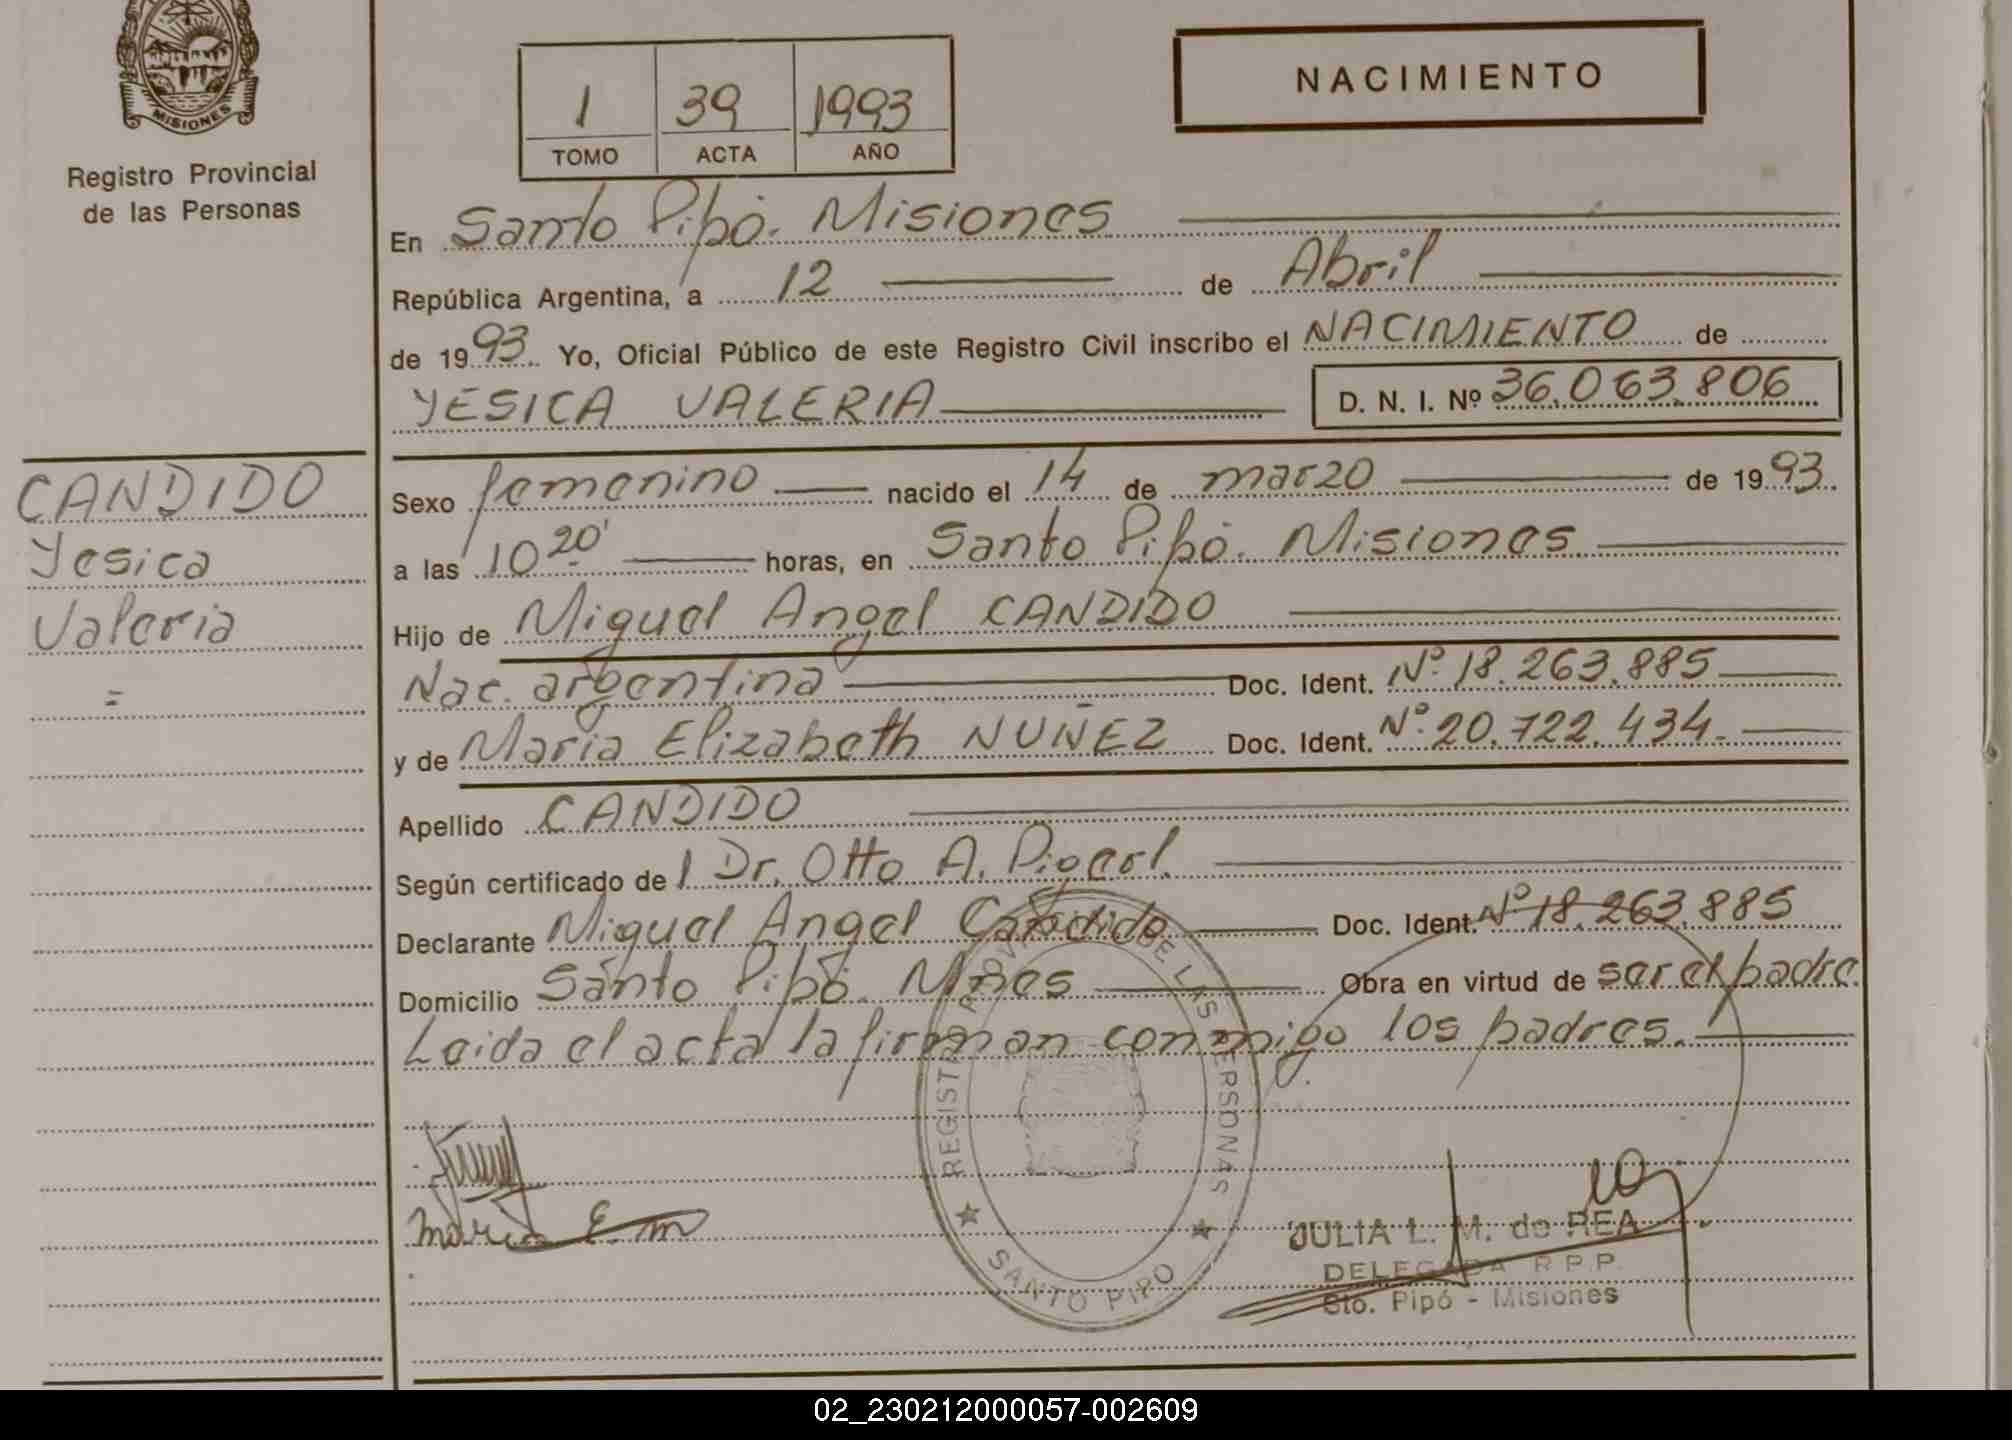 MISIONES
Registro Provincial
de las Personas
1 39 1993
TOMO ACTA AÑO
NACIMIENTO
En Santo Pipó. Misiones
República Argentina, a 12 de Abril
de 1993. Yo, Oficial Público de este Registro Civil inscribo el NACIMIENTO de
YESICA VALERIA D. N. I. Nº 36.063.806
CANDIDO
Yesica
Valeria
=
Sexo femenino nacido el 14 de marzo de 1993.
a las 10 20' horas, en Santo Pipó. Misiones
Hijo de Miguel Angel CANDIDO
Nac. argentina Doc. Ident. Nº 18.263.885
y de Maria Elizabeth NUÑEZ Doc. Ident. Nº 20.722.434.
Apellido CANDIDO
Según certificado de l Dr. Otto A.
Declarante Miguel Angel Candido Doc. Ident. Nº 18.263.885
Domicilio Santo Pipó. Mnes Obra en virtud de ser el padre.
Leida el acta la firman conmigo los padres.
REGISTRO PROVINCIAL DE LAS PERSONAS
SANTO PIPO
Maria E. m
JULIA L. M. de REA
DELEGADA R.P.P.
Sto. Pipó - Misiones
02_230212000057-002609